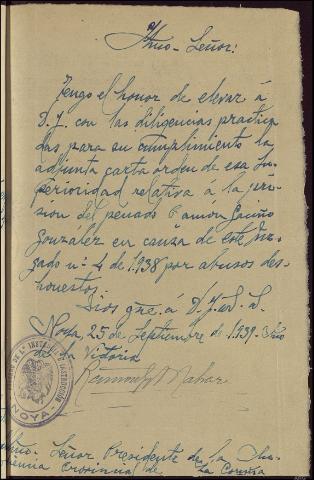 Iltmo. Señor:
Tengo el honor de elevar á
V.I. con las diligencias practica
das para su cumplimiento la
adjunta carta orden de esa Su-
perioridad relativa á la pri-
sion del penado Ramón
González en causa de este Juz-
gado nº 4 de 1.938 por abusos des-
honestos.
Dios gue. á V.I. m. a.
Noya, 25 de Septiembre de 1.939.- Año
de la Victoria
Ramon Nabar
INSTANCIA INSTRUCCION
NOYA
Iltmo. Señor Presidente de la Au-
diencia Provincial de La Coruña